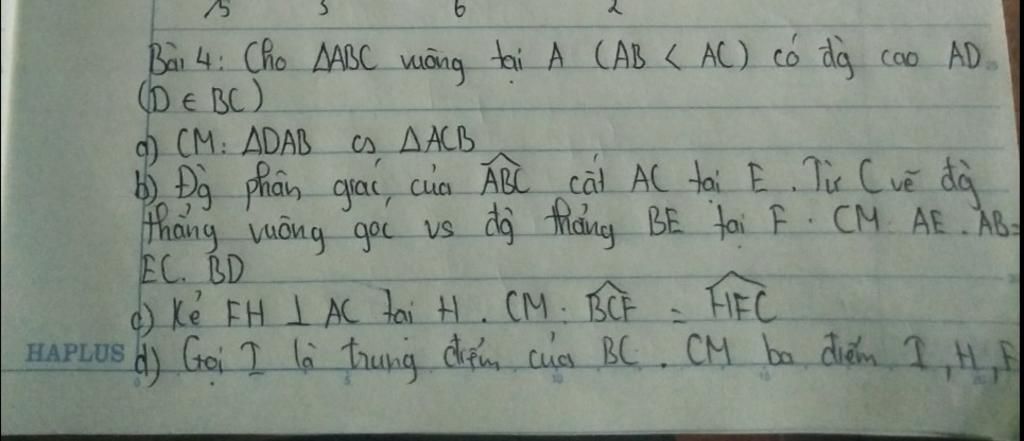 15 3 6 2
Bài 4: Cho ΔABC vuông tại A (AB < AC) có đg cao AD.
(D ∈ BC)
a) CM: ΔDAB ∽ ΔACB
b) Đg phân giác của \widehat{ABC} cắt AC tại E. Từ C vẽ đg
thẳng vuông góc vs đg thẳng BE tại F. CM AE. AB=
EC. BD
c) Kẻ FH ⊥ AC tại H. CM: \widehat{BCF} = \widehat{HFC}
HAPLUS d) Gọi I là trung điểm của BC. CM ba điểm I, H, F